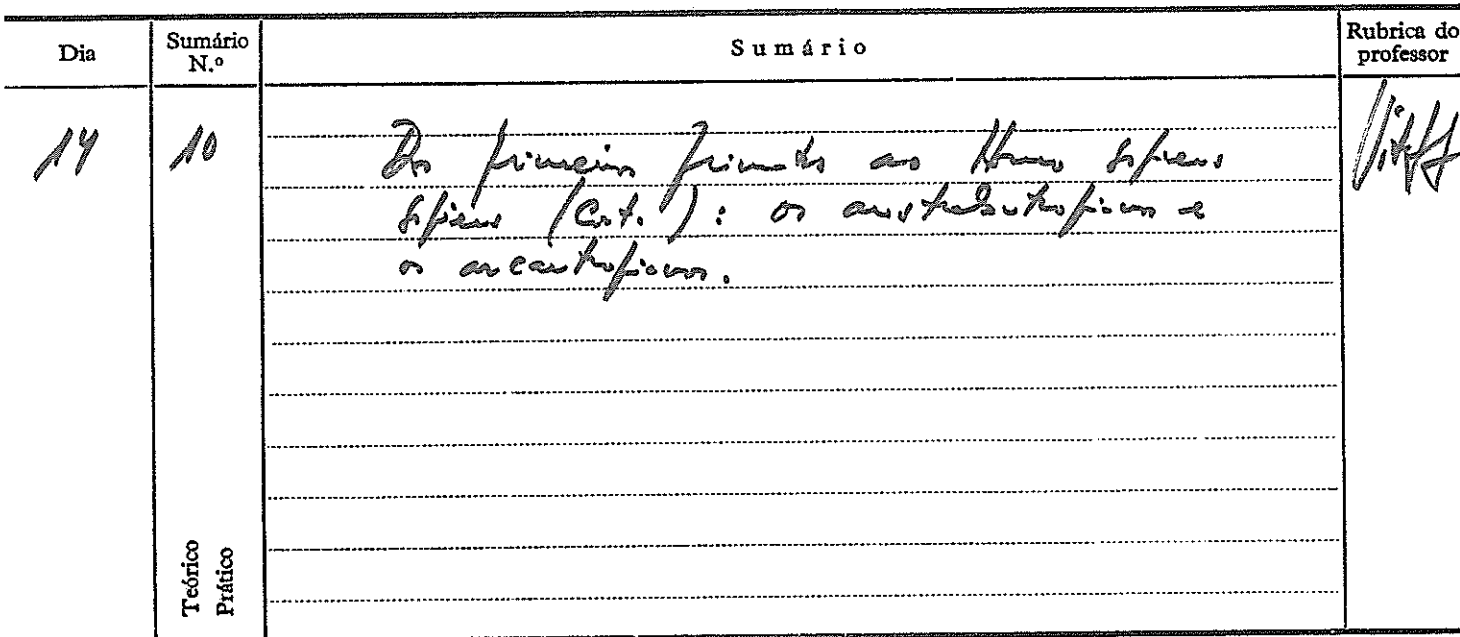 Dia
Sumário N.º
Sumário
Rubrica do professor
14
10
Dos primeiros primatas ao Homo sapiens
sapiens (Cont.): os australantropianos e
os arcantropianos.
Teórico
Prático